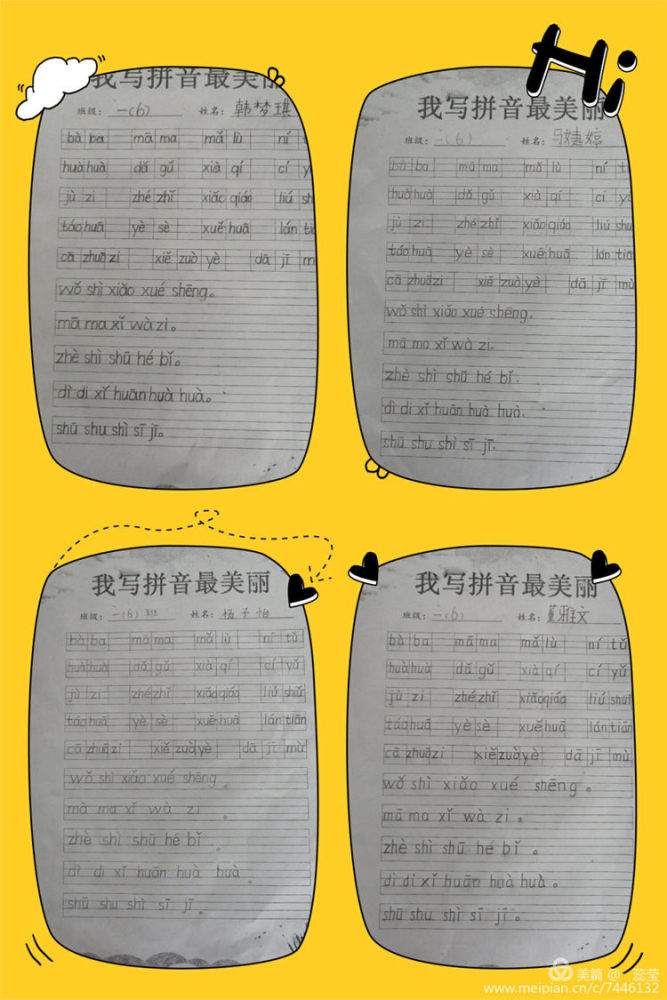 Hi
我写拼音最美丽
班级： 一(6) 姓名： 韩梦琪
bà ba mā ma mǎ lù ní t
huà huà dǎ gǔ xià qí cí y
jù zi zhé zhǐ xiǎo qiáo liú sh
táo huā yè sè xuě huā lán tiā
cā zhuō zi xiě zuò yè dā jī m
wǒ shì xiǎo xué shēng。
mā ma xǐ wà zi。
zhè shì shū hé bǐ。
dì di xǐ huān huà huà。
shū shu shì sī jī。
我写拼音最美丽
班级： 一(6) 姓名： 马婕婷
bà ba mā ma mǎ lù ní t
huà huà dǎ gǔ xià qí cí y
jù zi zhé zhǐ xiǎo qiáo liú shu
táo huā yè sè xuě huā lán tiā
cā zhuō zi xiě zuò yè dā jī mù
wǒ shì xiǎo xué shēng.
mā ma xǐ wà zi.
zhè shì shū hé bǐ.
dì di xǐ huān huà huà.
shū shu shì sī jī.
我写拼音最美丽
班级： 一(6)班 姓名： 杨子怡
bà ba mā ma mǎ lù ní tǔ
huà huà dǎ gǔ xià qí cí yǔ
jù zi zhé zhǐ xiǎo qiáo liú shuǐ
táo huā yè sè xuě huā lán tiān
cā zhuō zi xiě zuò yè dā jī mù
wǒ shì xiǎo xué shēng 。
mā ma xǐ wà zi 。
zhè shì shū hé bǐ 。
dì di xǐ huān huà huà 。
shū shu shì sī jī 。
我写拼音最美丽
班级： 一(6) 姓名： 董雅文
bà ba mā ma mǎ lù ní tǔ
huà huà dǎ gǔ xià qí cí yǔ
jù zi zhé zhǐ xiǎo qiáo liú shuǐ
táo huā yè sè xuě huā lán tiān
cā zhuō zi xiě zuò yè dā jī mù
wǒ shì xiǎo xué shēng 。
mā ma xǐ wà zi 。
zhè shì shū hé bǐ 。
dì di xǐ huān huà huà 。
shū shu shì sī jī 。
美篇 @ 蕊莹
www.meipian.cn/c/7446132